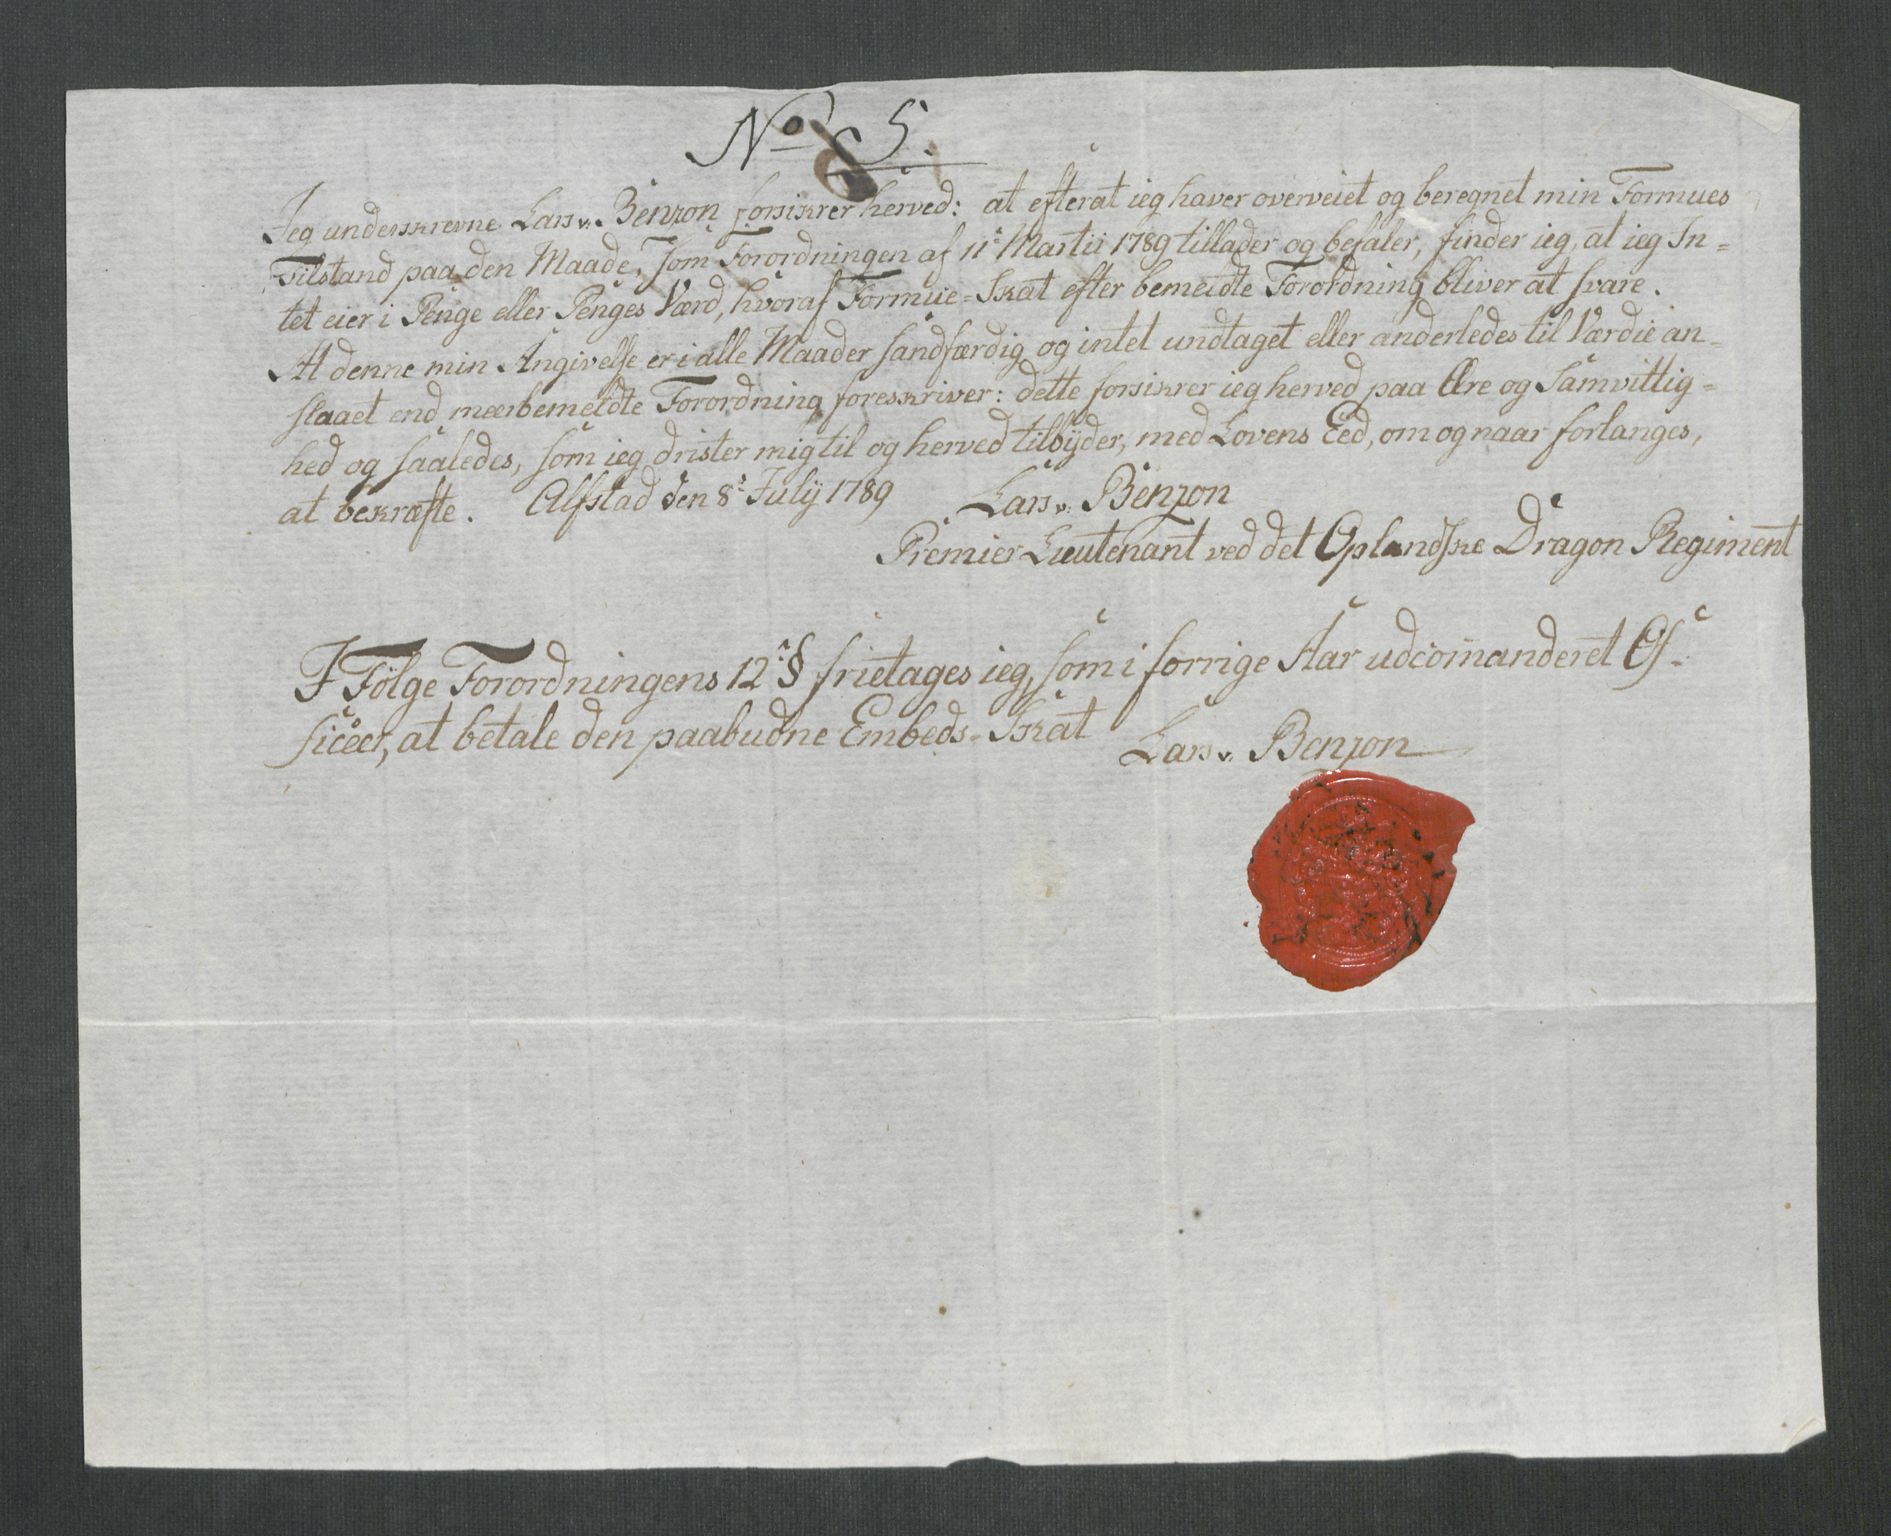 No 5.
Jeg underskrevne Lars v. Benzon forsikrer herved: at efterat ieg haver overveiet og beregnet min Formues
Tilstand paa den Maade, som Forordningen af 11te Martii 1789 tillader og befaler, finder ieg, at ieg In=
tet eier i Penge eller Penges Værd, hvoraf Formue=Skat efter bemeldte Forordning bliver at svare.
At denne min Angivelse er i alle Maader sandfærdig og intet undtaget eller anderledes til Værdie an=
slaaet end meerbemeldte Forordning foreskriver: dette forsikrer ieg herved paa Ære og Samvittig=
hed og saaledes, som ieg drister mig til og herved tilbÿder, med Lovens Eed, om og naar forlanges,
at bekræfte. Alfstad den 8de Julÿ 1789 Lars v. Benzon
Premier Lieutenant ved det Oplandske Dragon Regiment
I Følge Forordningens 12te § frietages ieg, som i forrige Aar udcom̄anderet Of=
ficeer, at betale den paabudne Embeds=Skat
Lars v. Benzon